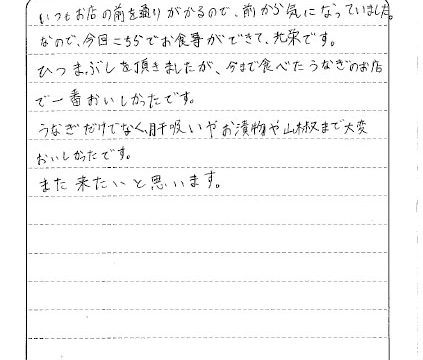 いつもお店の前を通りがかるので、前から気になっていました。
なので、今回こちらでお食事ができて、光栄です。
ひつまぶしを頂きましたが、今まで食べたうなぎのお店
で一番おいしかったです。
うなぎだけでなく、肝吸いやお漬物や山椒まで大変
おいしかったです。
また来たいと思います。